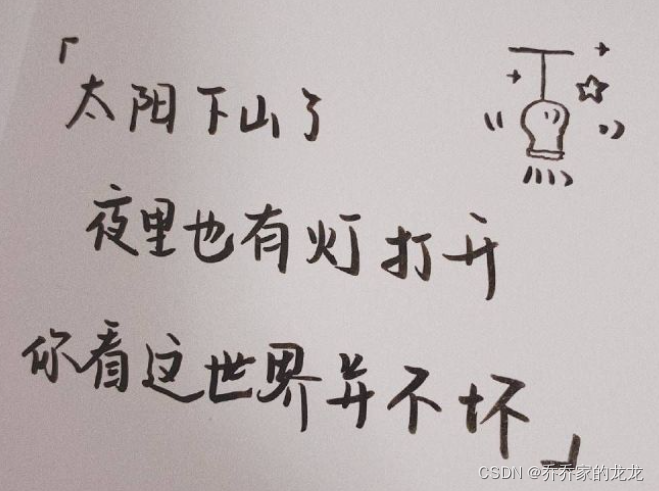 「太阳下山了
夜里也有灯打开
你看这世界并不坏」
CSDN @乔乔家的龙龙